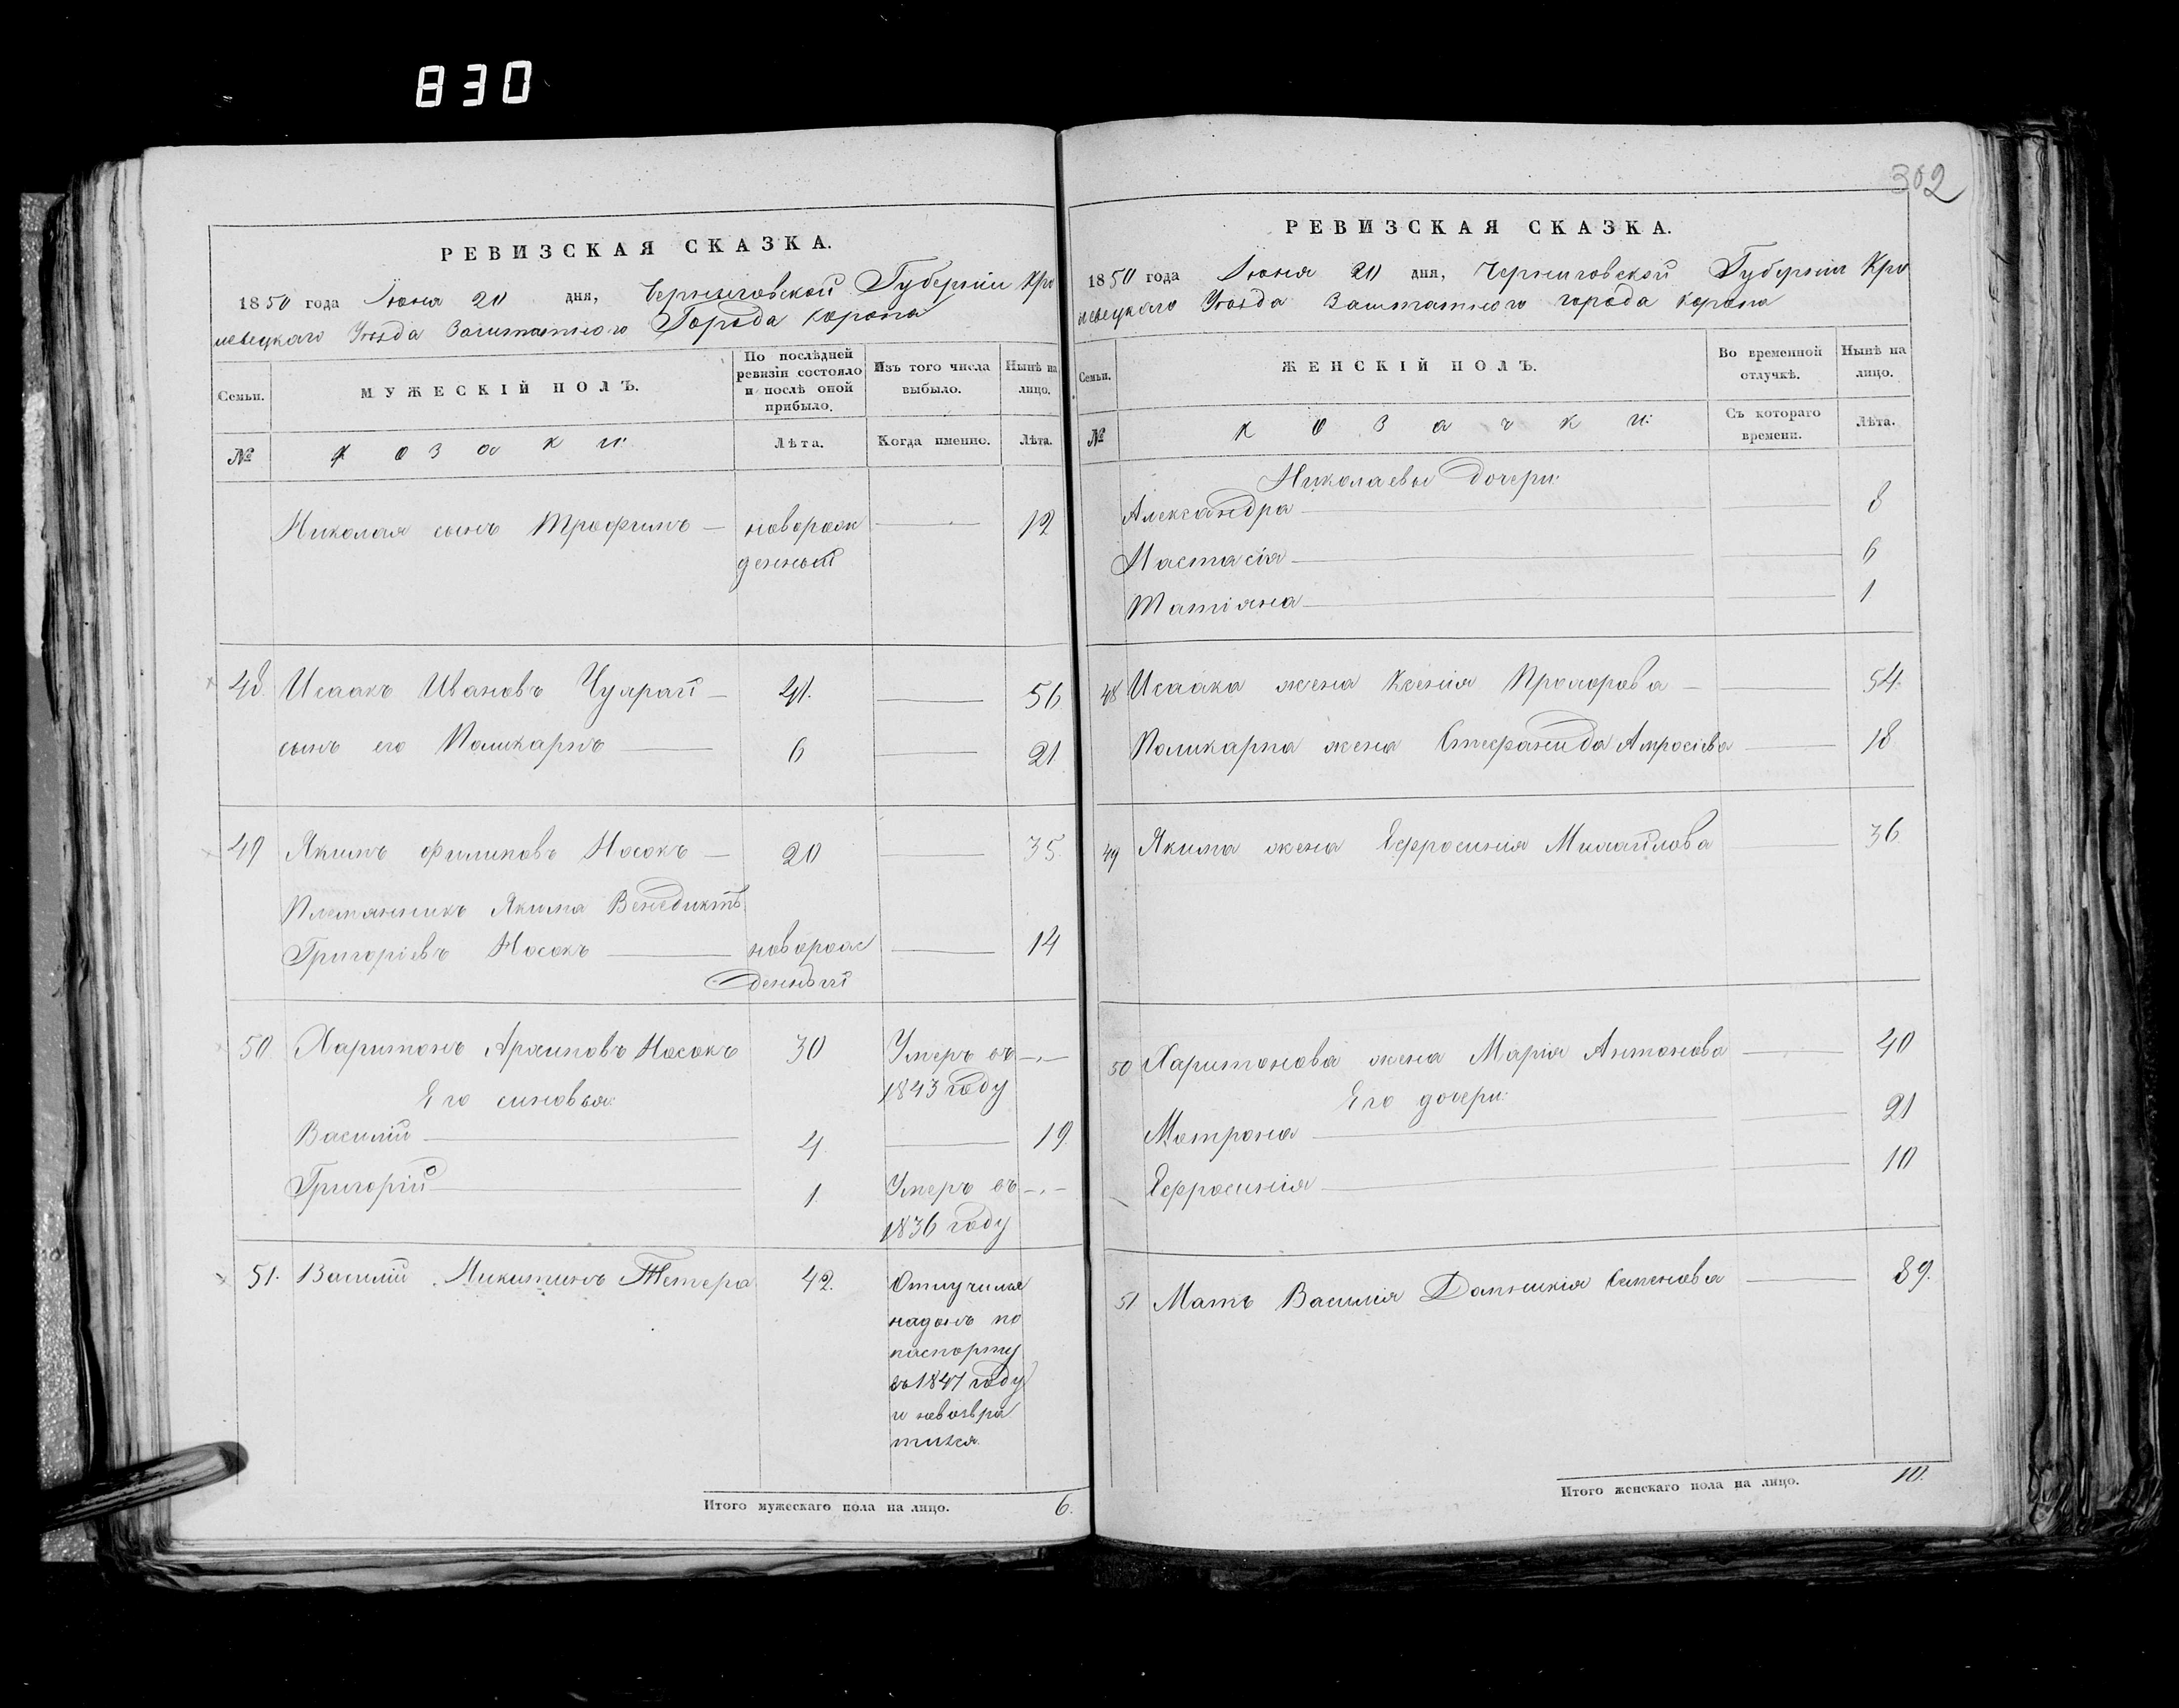 830
РЕВИЗСКАЯ СКАЗКА.
1850 года Июня 20 дня, Черниговской Губерніи Кро
левецкаго Уезда Заштатного Города Коропа
Семьи.
МУЖЕСКІЙ ПОЛЪ.
По послѣдней
ревизіи состояло
и послѣ оной
прибыло.
Изъ того числа
выбыло.
Нынѣ на
лицо.
№
Козаки:
Лѣта.
Когда именно.
Лѣта.
Николая сынъ Трофимъ — новорож 12
денный
48 Исаакъ Ивановъ — 41. 56
сынъ его Поликарпъ 6 21
49 Якимъ Филиповъ Носокъ — 20 35.
Племянникъ Якима Венедиктъ
Григоріевъ Носокъ новорож 14
денный
50. Харитонъ Архиповъ Носокъ 30 Умеръ въ —.—
1843 году
Его синовья:
Василій 4 19.
Григорій 1. Умеръ въ —.—
1836 году
51. Василій Микитинъ Тетера 42. Отлучился
надонъ по
паспорту
въ 1847 году
и невозвра
тился.
Итого мужескаго пола на лицо. 6.
302
РЕВИЗСКАЯ СКАЗКА.
1850 года Июня 20 дня, Черниговской Губерніи Кро
левецкаго Уезда Заштатного города Коропа
Семьи.
ЖЕНСКІЙ ПОЛЪ.
Во временной
отлучкѣ.
Нынѣ на
лицо.
№
Козачки:
Съ котораго
времени.
Лѣта.
Николаевы Дочери:
Александра 8
Настасія 6
Татіяна 1
48 Исаака жена Ксенія Прохорова — 54.
Поликарпа жена Стефанида Амросіева 18
49 Якима жена Ефросинія Михайлова 36.
50 Харитонова жена Марія Антонова 40
Его дочери:
Мотрона 21
Ефросинія 10
51 Мать Василія Домникія Семенова 89.
Итого женскаго пола на лицо. 10.